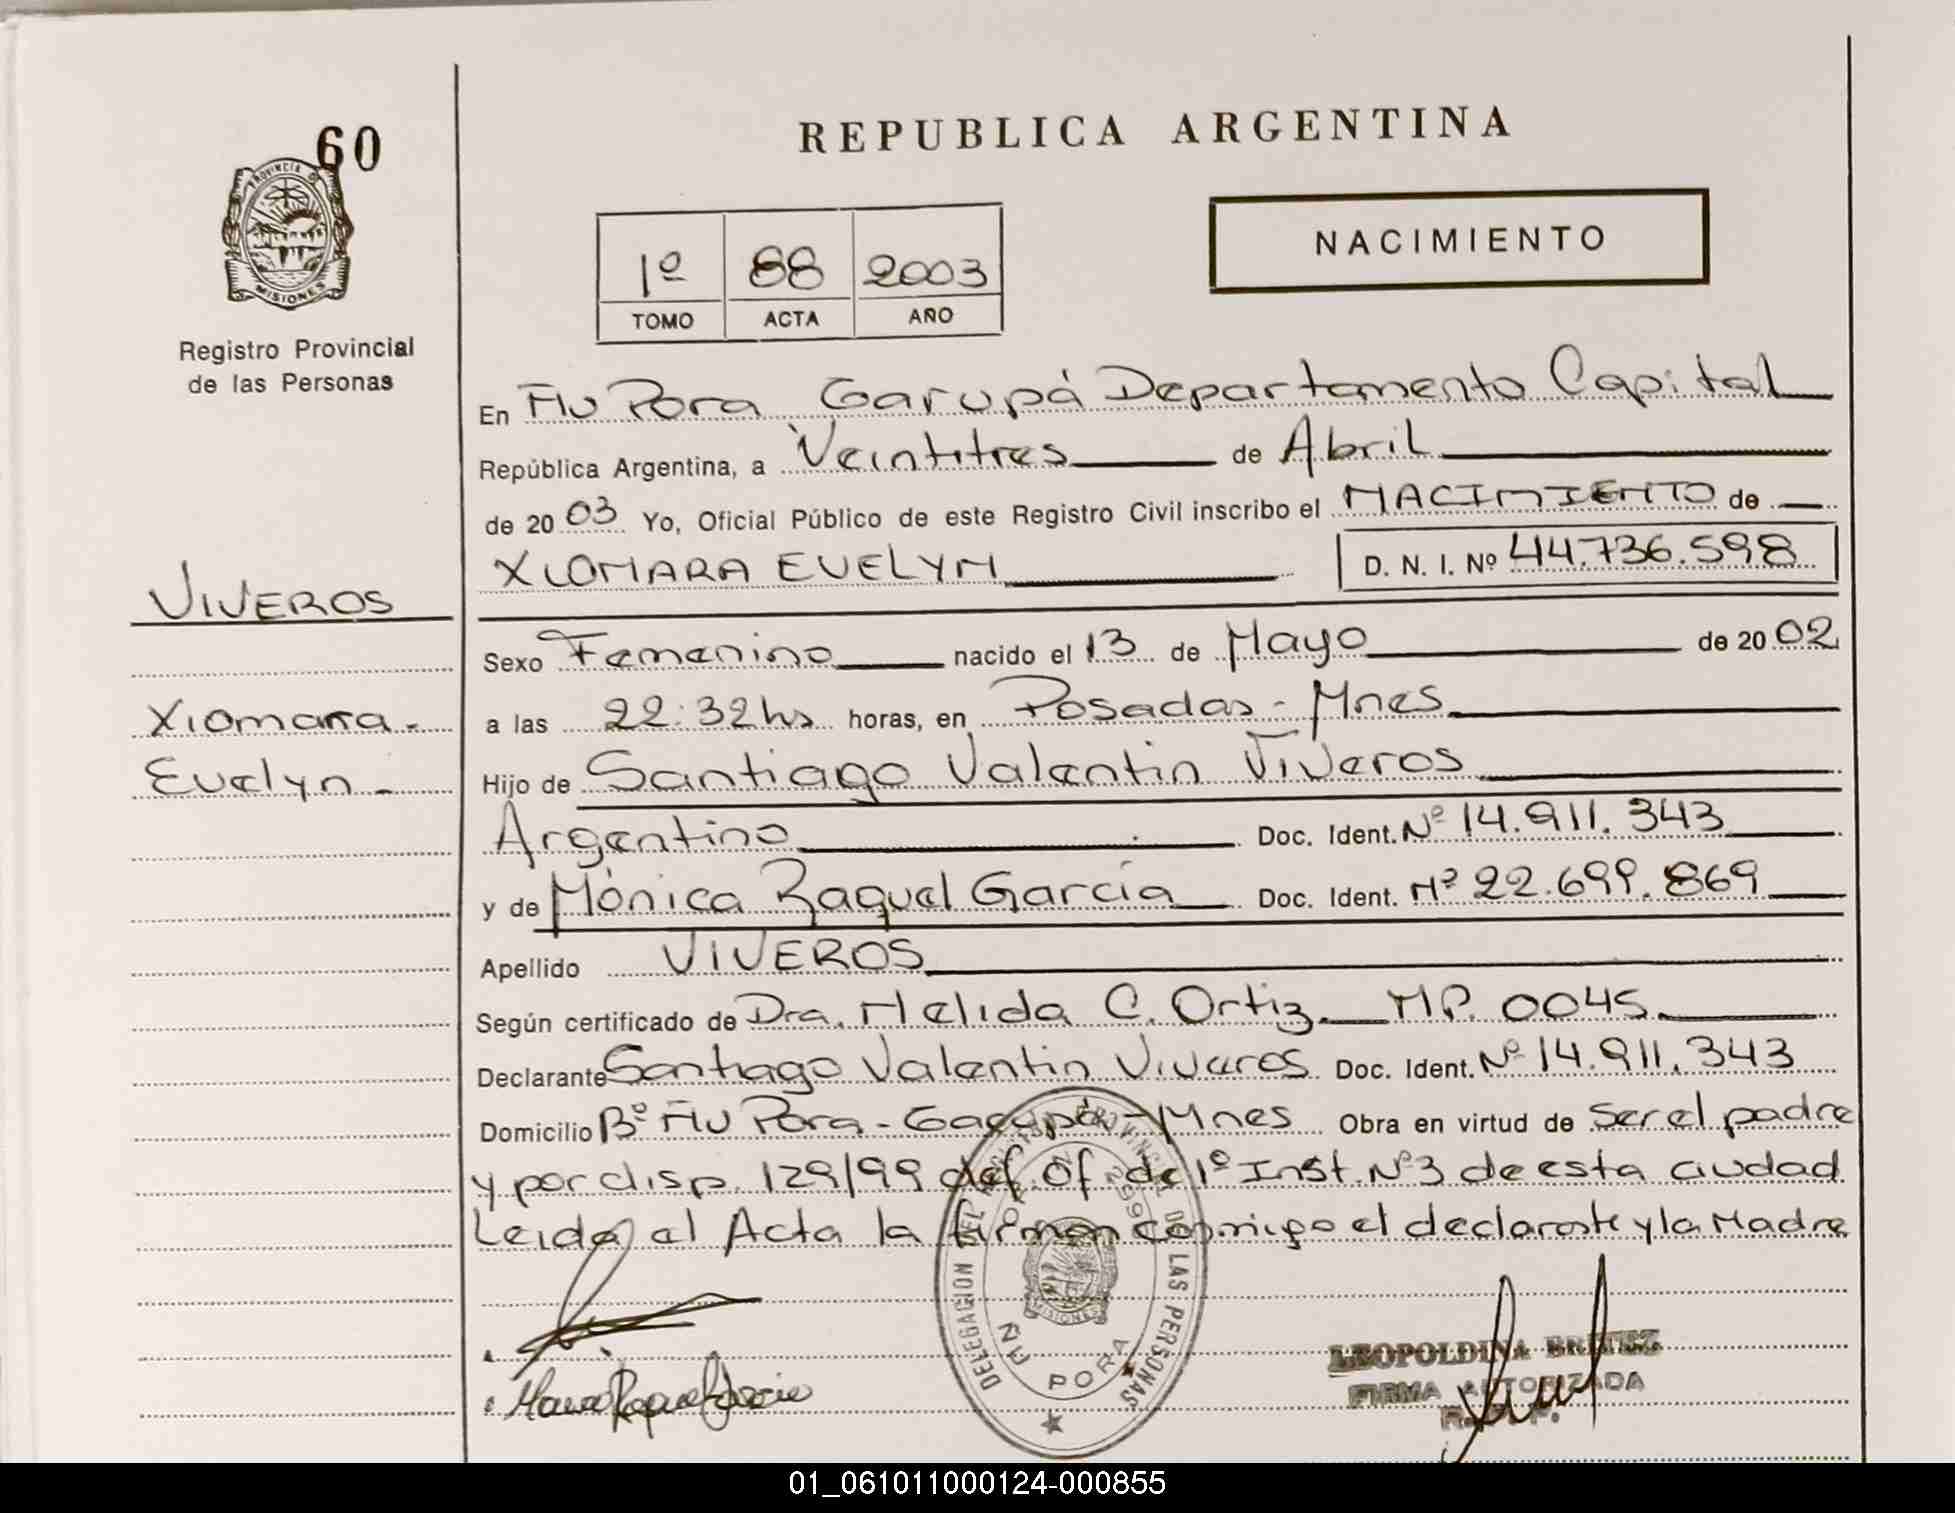 60
PROVINCIA DE
MISIONES
Registro Provincial
de las Personas
VIVEROS
Xiomara.
Evelyn
REPUBLICA ARGENTINA
1º 88 2003
TOMO ACTA AÑO
NACIMIENTO
En Ñu Pora Garupá Departamento Capital
República Argentina, a Veintitres de Abril
de 20 03 Yo, Oficial Público de este Registro Civil inscribo el NACIMIENTO de
XIOMARA EVELYN D. N. I. Nº 44.736.598
Sexo Femenino nacido el 13 de Mayo de 20 02
a las 22:32hs horas, en Posadas - Mnes
Hijo de Santiago Valentin Viveros
Argentino Doc. Ident. Nº 14.911.343
y de Mónica Raquel García Doc. Ident. Nº 22.699.869
Apellido VIVEROS
Según certificado de Dra. Nelida C. Ortiz MP. 0045
Declarante Santiago Valentin Viveros Doc. Ident. Nº 14.911.343
Domicilio Bº Ñu Pora - Garupá - Mnes Obra en virtud de Ser el padre
y por disp. 129/99 def. Of. de 1º Inst. Nº3 de esta ciudad
Leida el Acta la firman conmigo el declarante y la Madre
DELEGACION DEL REGISTRO PROVINCIAL DE LAS PERSONAS
MISIONES
ÑU PORA
LEOPOLDINA
FIRMA AUTORIZADA
01_061011000124-000855